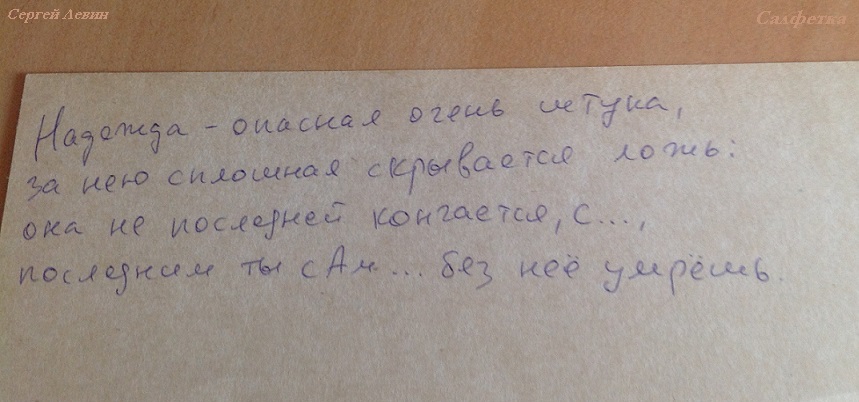 Сергей Левин
Салфетка
Надежда - опасная очень штука,
за нею сплошная скрывается ложь:
она не последней кончается, с...,
последним ты сАм... без неё умрёшь.